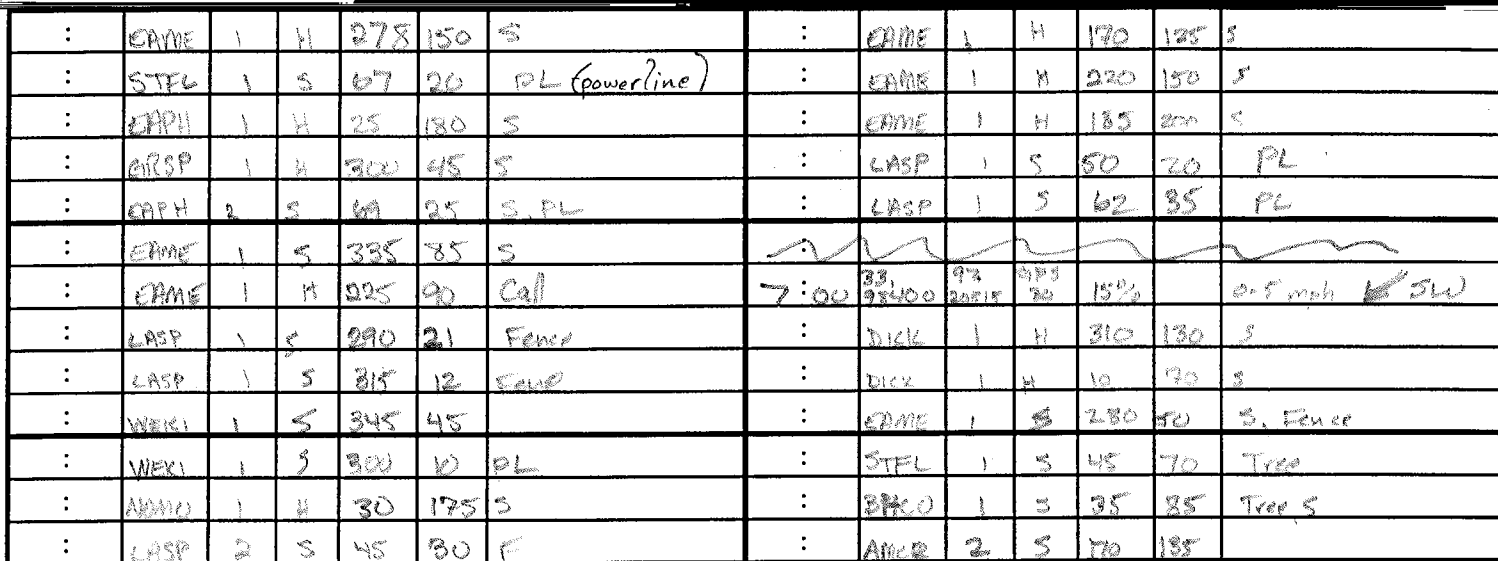 : EAME 1 H 278 150 S
: STFL 1 S 67 20 PL (powerline)
: EAPH 1 H 25 180 S
: GRSP 1 H 300 45 S
: EAPH 2 S 69 25 S, PL
: EAME 1 S 335 85 S
: EAME 1 H 225 90 Call
: LASP 1 S 290 21 Fence
: LASP 1 S 315 12 Fence
: WEKI 1 S 345 45
: WEKI 1 S 300 10 PL
: NOMO 1 H 30 175 S
: LASP 2 S 45 30 F
: EAME 1 H 170 125 S
: EAME 1 H 220 150 S
: EAME 1 H 185 200 S
: LASP 1 S 50 20 PL
: LASP 1 S 62 35 PL
7:00 33. 98400 97. 20515 15% 0-5 mph SW
: DICK 1 H 310 130 S
: DICK 1 H 10 70 S
: EAME 1 S 280 50 S, Fence
: STFL 1 S 45 70 Tree
: BHCO 1 S 35 85 Tree, S
: AMCR 2 S 70 135